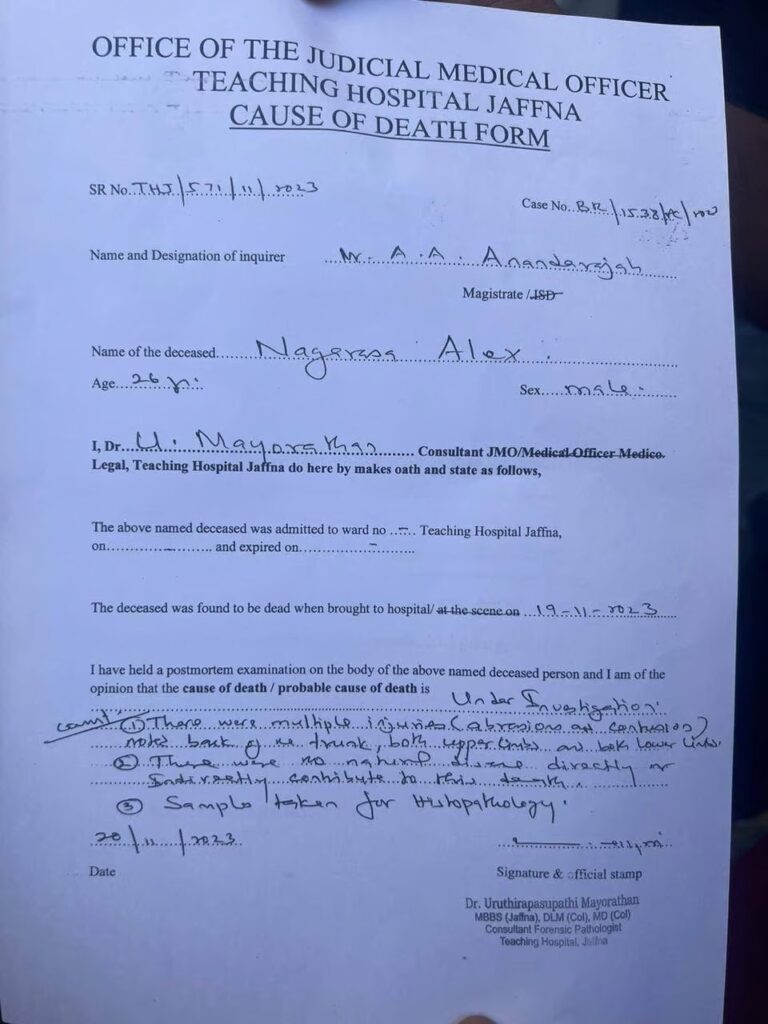 OFFICE OF THE JUDICIAL MEDICAL OFFICER
TEACHING HOSPITAL JAFFNA
CAUSE OF DEATH FORM
SR No. THJ/571/11/2023
Case No. BR/1538/PC/2023
Name and Designation of inquirer Mr. A.A. Anandarajah
Magistrate /JSD
Name of the deceased Nagarasa Alex.
Age 26 yr.
Sex male.
I, Dr. U. Mayorathan Consultant JMO/Medical Officer Medico.
Legal, Teaching Hospital Jaffna do here by makes oath and state as follows,
The above named deceased was admitted to ward no ..-.. Teaching Hospital Jaffna,
on.......-....... and expired on.......-.......
The deceased was found to be dead when brought to hospital/ at the scene on 19-11-2023
I have held a postmortem examination on the body of the above named deceased person and I am of the
opinion that the cause of death / probable cause of death is
Under Investigation.
(1) There were multiple injuries (abrasions and contusion)
noted back of the trunk, both upper limbs and both lower limbs.
(2) There were no natural disease directly or
Indirectly contribute to this death.
(3) Sample taken for Histopathology.
20/11/2023
Date
Signature & official stamp
Dr. Uruthirapasupathi Mayorathan
MBBS (Jaffna), DLM (Col), MD (Col)
Consultant Forensic Pathologist
Teaching Hospital, Jaffna